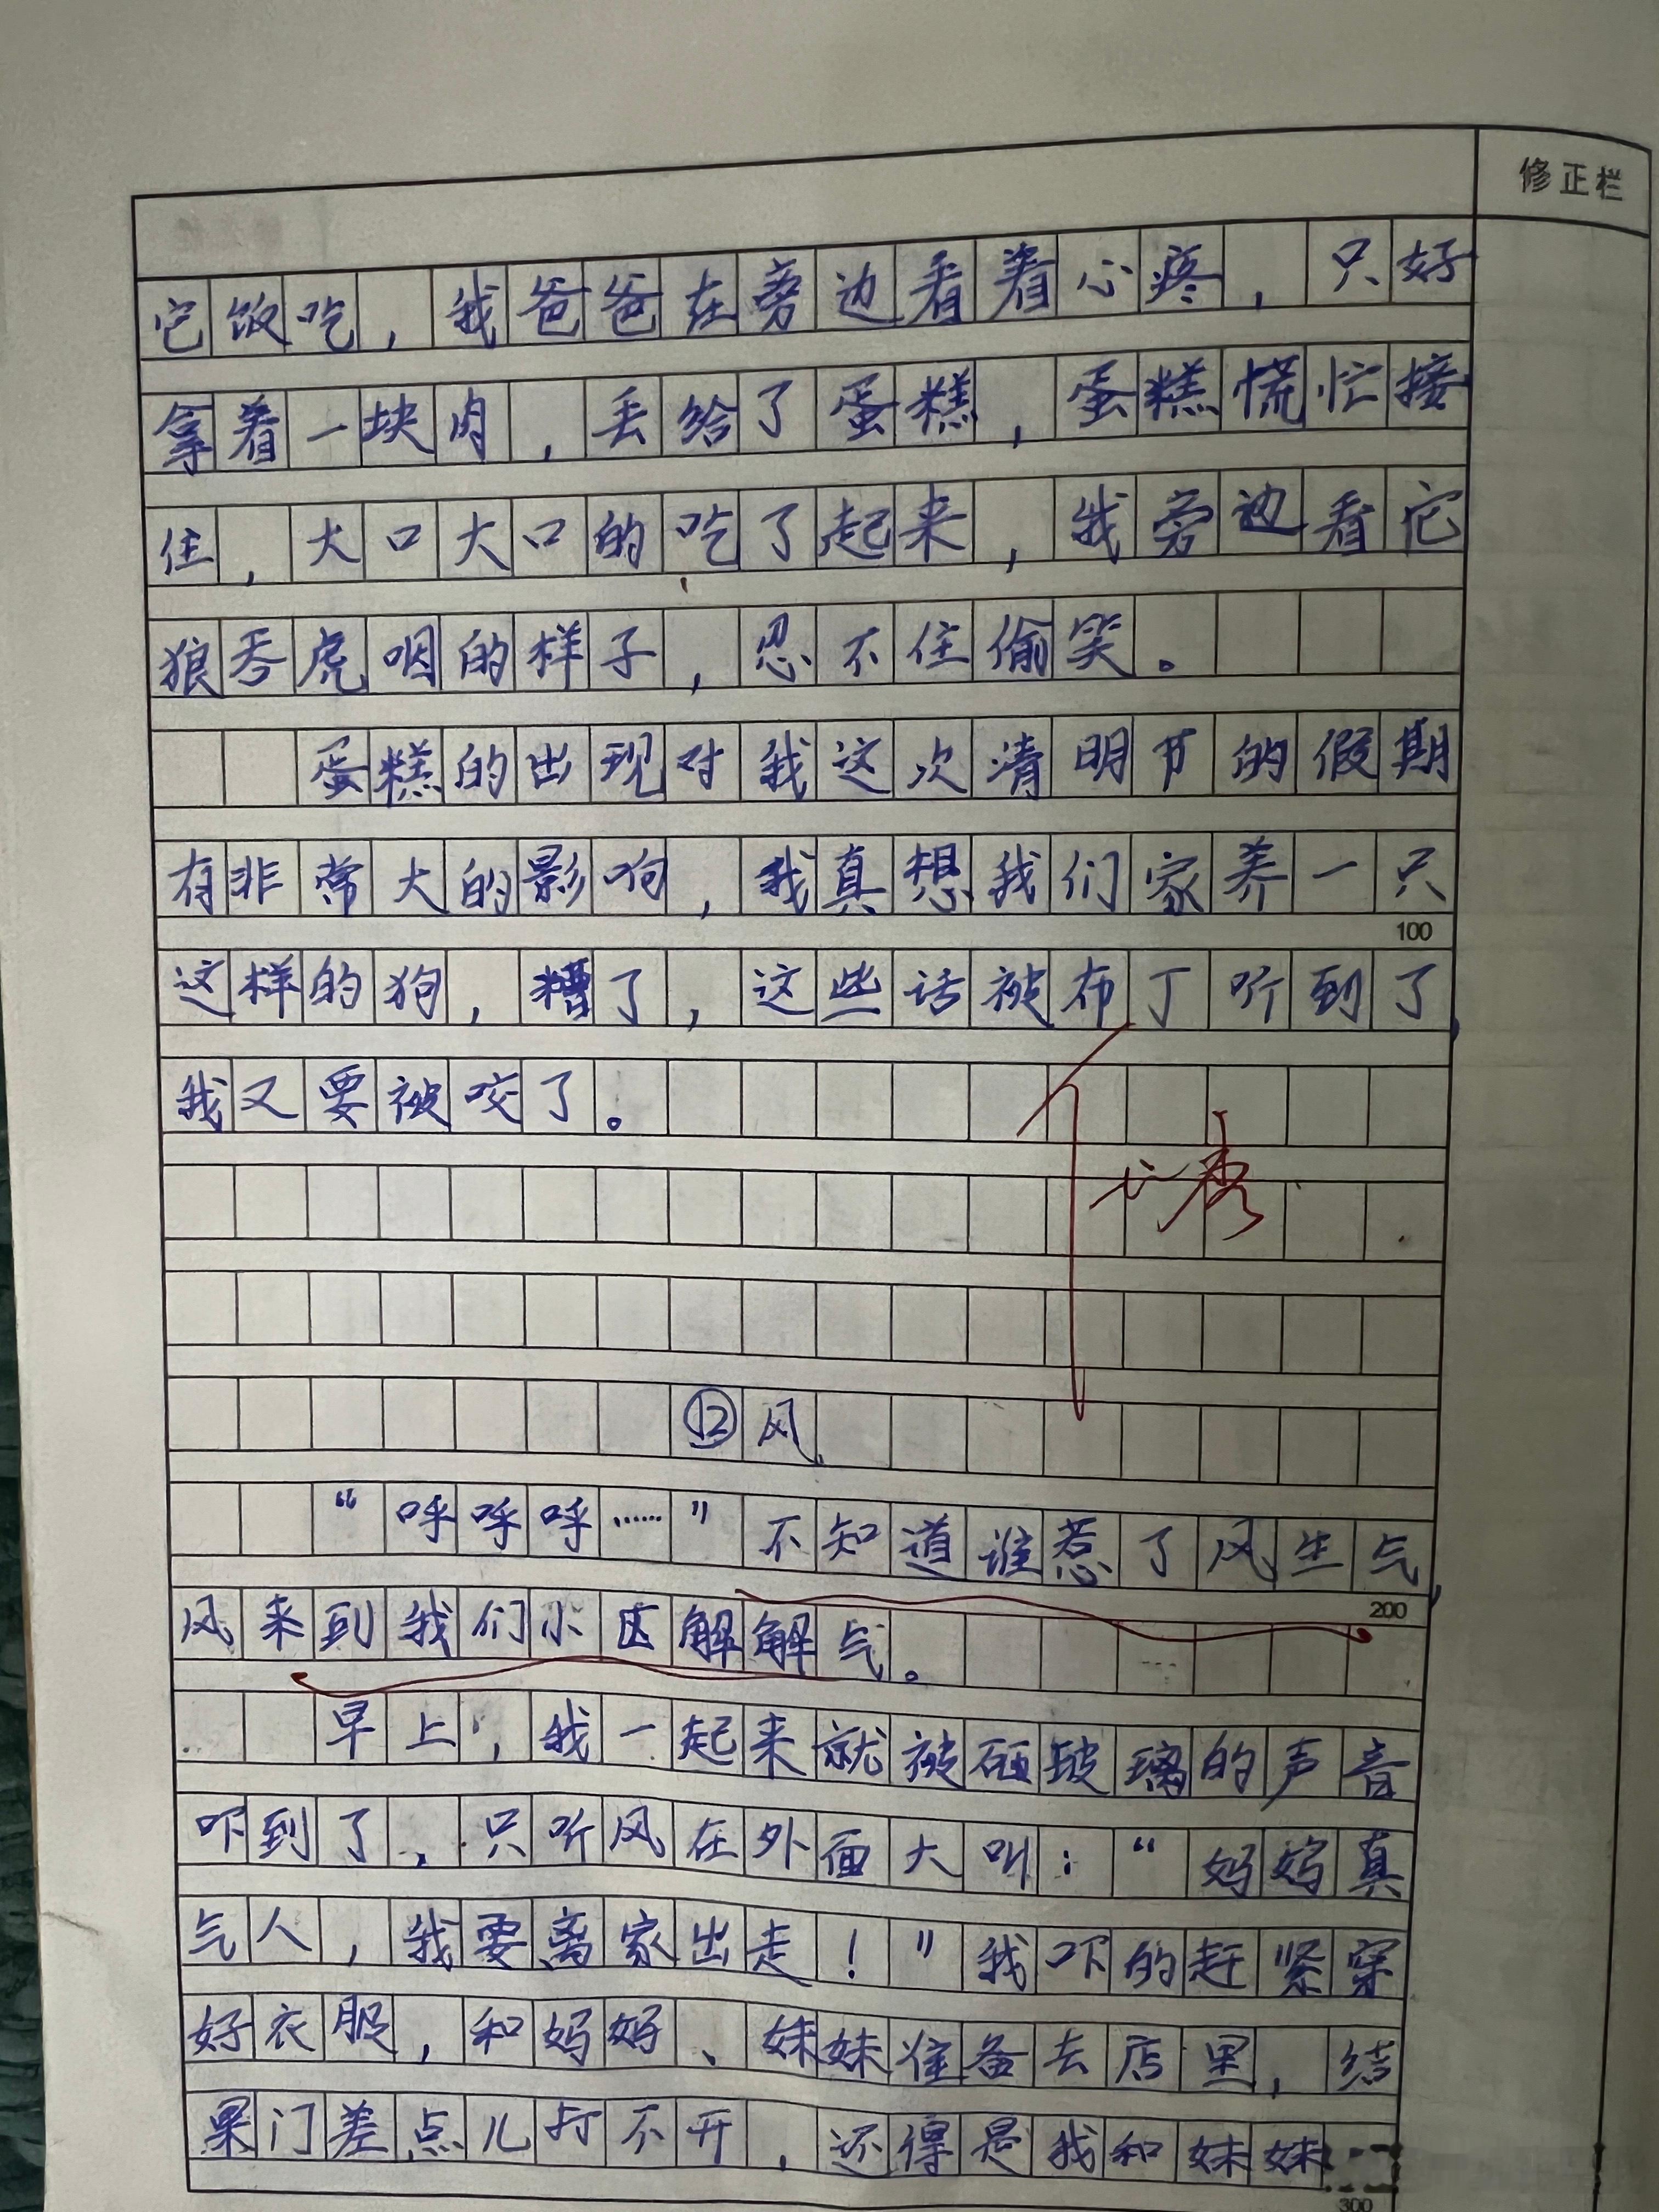 修正栏
它饭吃，我爸爸在旁边看着心疼，只好
拿着一块肉，丢给了蛋糕，蛋糕慌忙接
住，大口大口的吃了起来，我旁边看它
狼吞虎咽的样子，忍不住偷笑。
蛋糕的出现对我这次清明节的假期
有非常大的影响，我真想我们家养一只
100
这样的狗，糟了，这些话被布丁听到了，
我又要被咬了。
⑫风
“呼呼呼……”不知道谁惹了风生气，
200
风来到我们小区解解气。
早上，我一起来就被砸玻璃的声音
吓到了，只听风在外面大叫：“妈妈真
气人，我要离家出走！”我吓的赶紧穿
好衣服，和妈妈、妹妹准备去店里，结
果门差点儿打不开，还得是我和妹妹
300